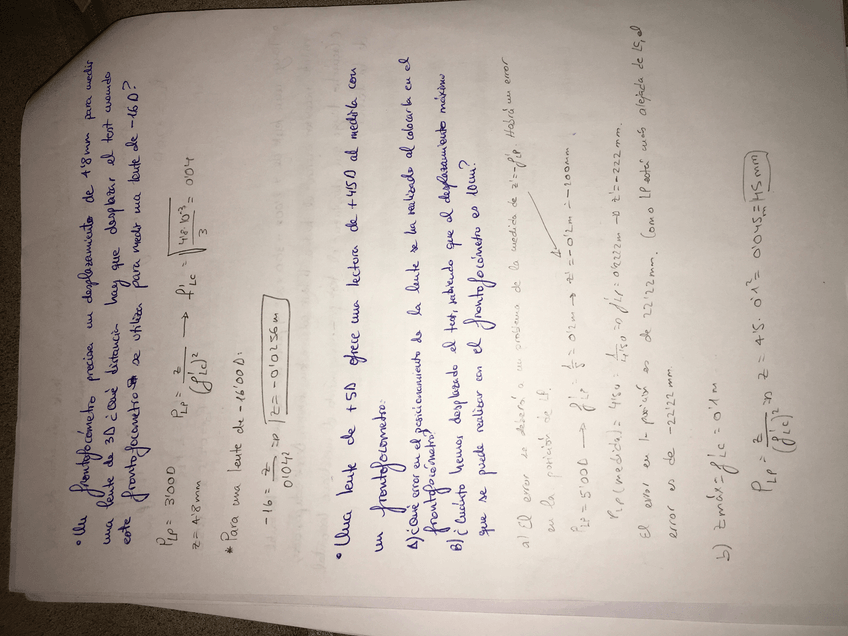 • Un frontofocómetro precisa un desplazamiento de 4'8 mm para medir
una lente de 3D ¿Qué distancia hay que desplazar el test cuando
este frontofocómetro se utiliza para medir una lente de -16D?
P_LP = 3'00D
z = 4'8mm
P_LP = z / (f'_LC)² → f'_LC = √(4'8·10⁻³ / 3) = 0'04
* Para una lente de -16'00D:
-16 = z / 0'04² ⇒ z = -0'0256 m
• Una lente de +5D ofrece una lectura de +4'5D al medirla con
un frontofocómetro:
A) ¿Qué error en el posicionamiento de la lente se ha realizado al colocarla en el
frontofocómetro?
B) ¿Cuánto hemos desplazado el test, sabiendo que el desplazamiento máximo
que se puede realizar con el frontofocómetro es 10cm?
a) El error se deberá a un problema de la medida de z' = -f'_LP. Habrá un error
en la posición de LP.
P_LP = 5'00D → f'_LP = 1/5 = 0'2m → z' = -0'2m = -200mm.
P_LP (medida) = 4'50 = 1/4'50 ⇒ f'_LP = 0'222m → z' = -222mm.
El error en la posición es de 22'22mm. Como LP estará más alejada de LC, el
error es de -22'22 mm.
b) z máx = f'_LC = 0'1m
P_LP = z / (f'_LC)² ⇒ z = 4'5 · 0'1² = 0'045m = 45mm